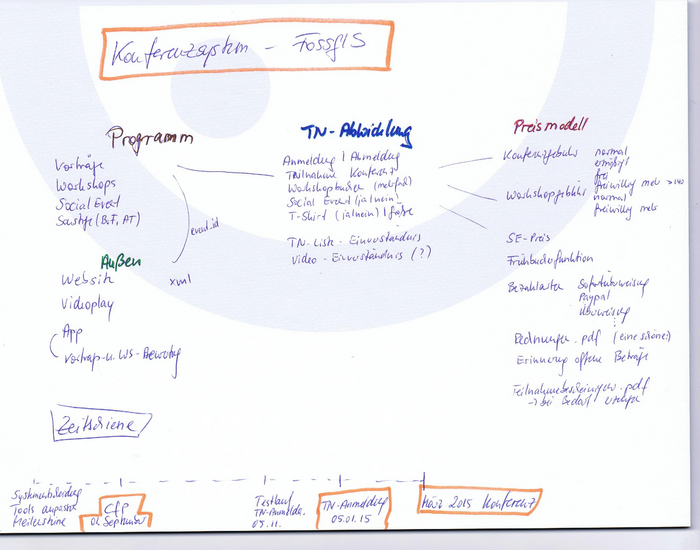 Konferenzsystem - FossGIS
Programm
Vorträge
Workshops
Social Event
Sonstige (BoF, AT)
event_id
Außen
Website
xml
Videoplay
App
Vortrags- u. WS-Bewertung
TN-Abwicklung
Anmeldung / Abmeldung
Teilnahme Konferenz
Workshopbuchen (mehrfach)
Social Event (ja/nein)
T-Shirt (ja/nein) / Größe
TN-Liste - Einverständnis
Video - Einverständnis (?)
Preismodell
Konferenzgebühr normal
ermäßigt
frei
freiwillig mehr
Workshopgebühr
normal
freiwillig mehr
SE-Preis
Frühbucherfunktion
Bezahlarten Sofortüberweisung
Paypal
Überweisung
Rechnungen .pdf (eine schöne!)
Erinnerung offene Beträge
Teilnahmebescheinigungen .pdf
→ bei Bedarf
Zeitschiene
Systementscheidung
Tools anpassen
Meilensteine
CfP
01. September
Testlauf
TN-Anmeldg.
05.11.
TN-Anmeldung
05.01.15
März 2015 Konferenz